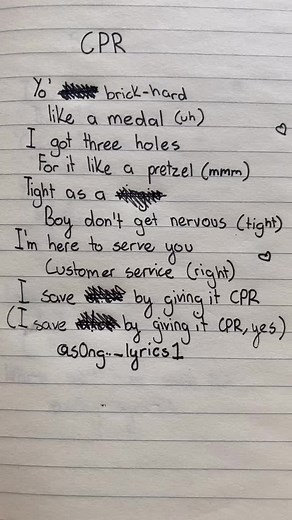 CPR
Yo' brick-hard
like a medal (uh)
I got three holes
For it like a pretzel (mmm)
Tight as a
Boy don't get nervous (tight)
I'm here to serve you
Customer service (right)
I save by giving it CPR
(I save by giving it CPR, yes)
@s0ng._lyrics1